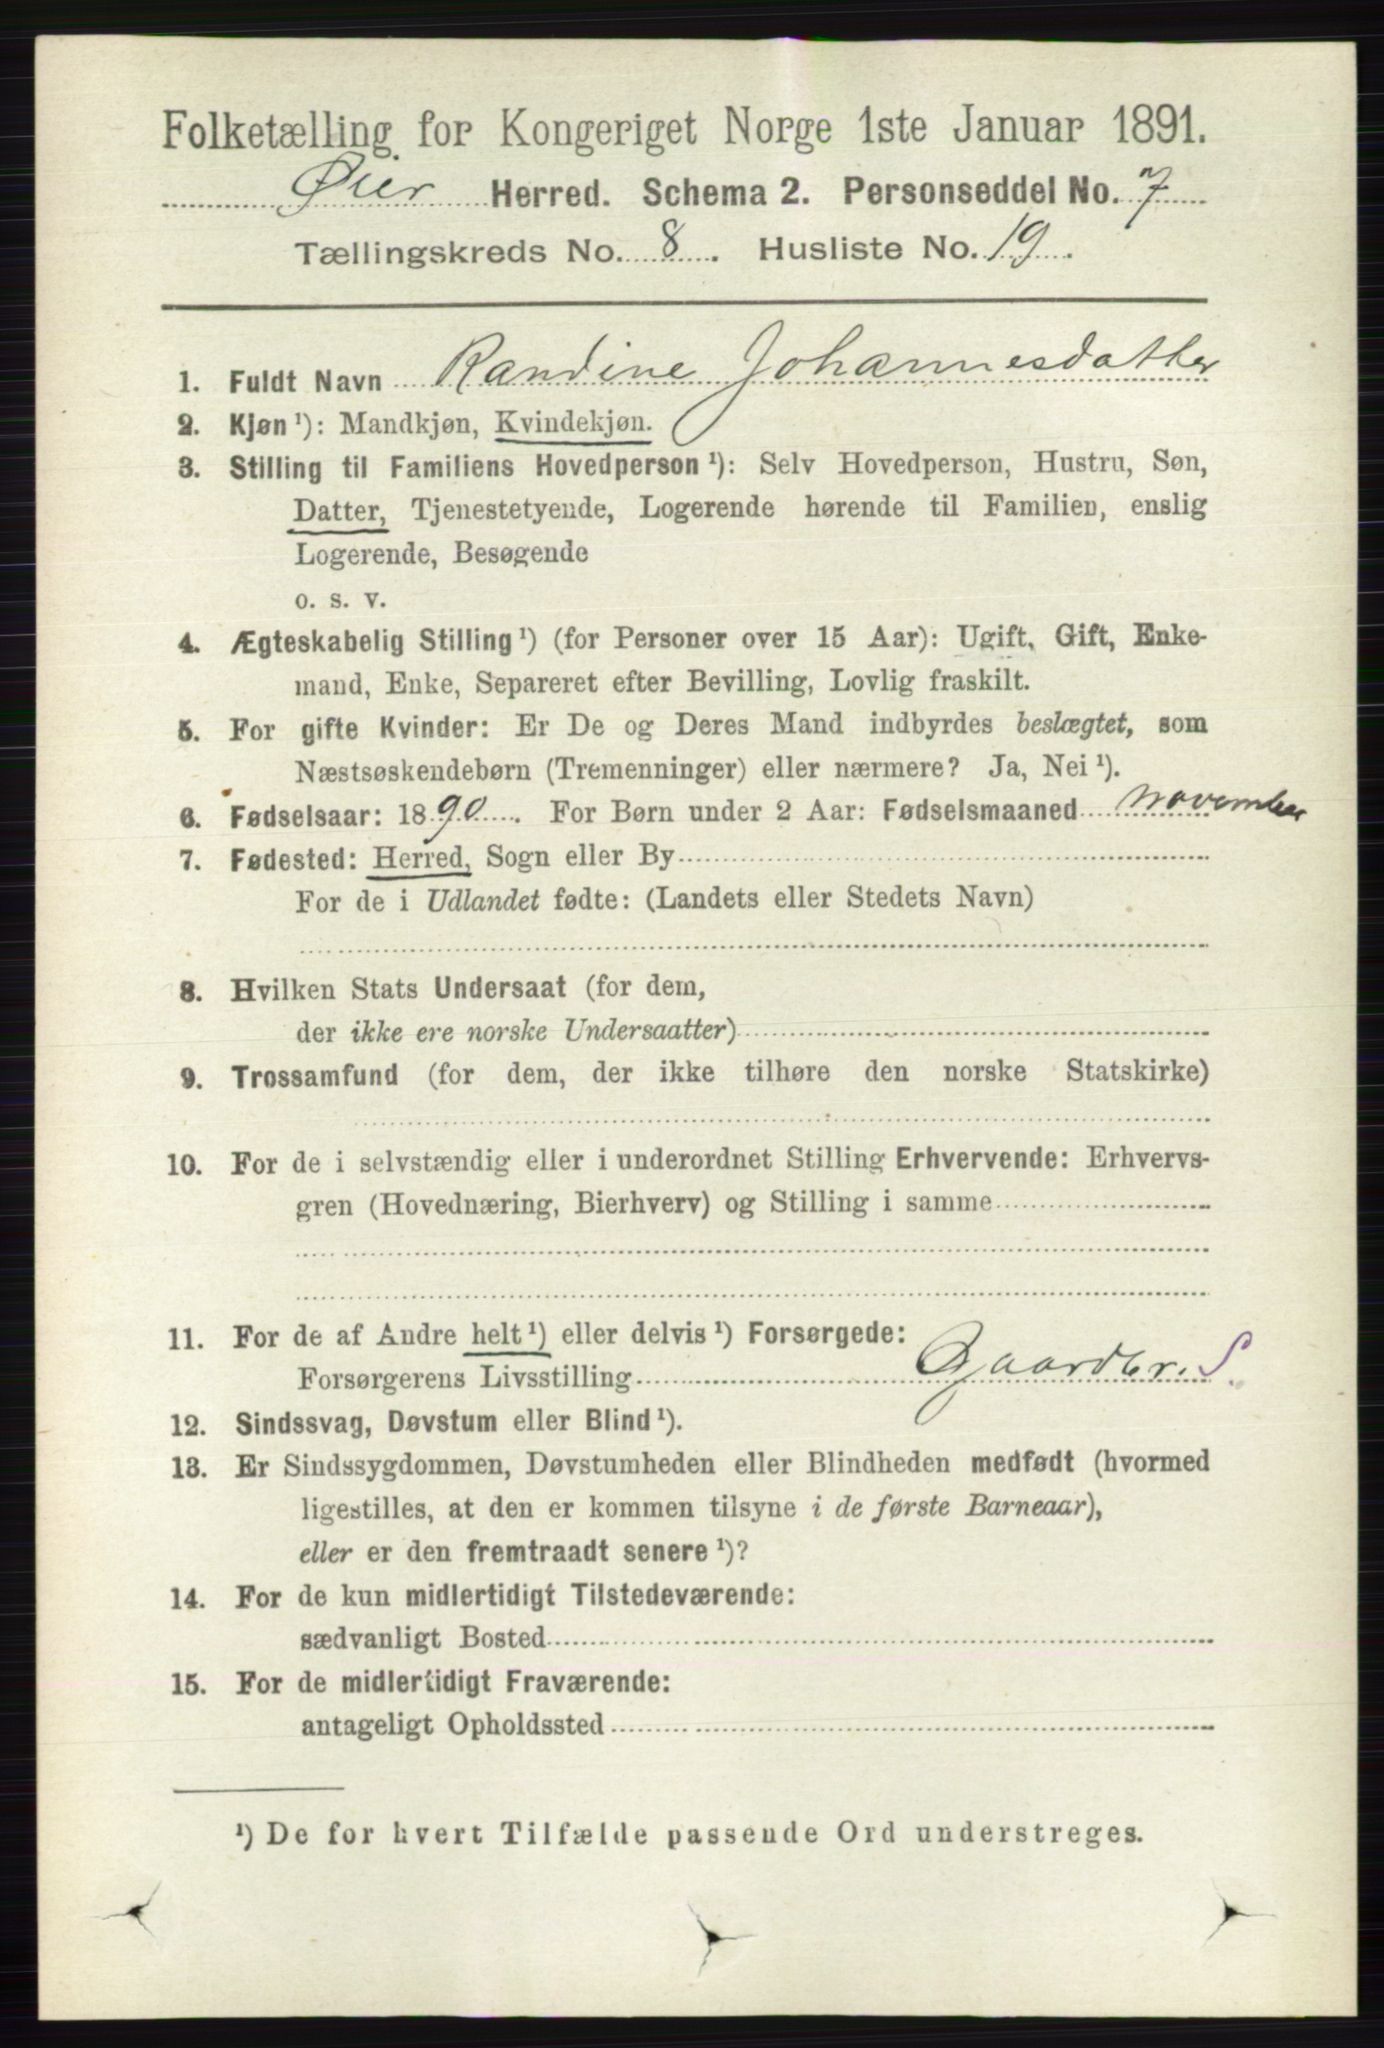 Folketælling for Kongeriget Norge 1ste Januar 1891.
Øier Herred. Schema 2. Personseddel No. 7
Tællingskreds No. 8. Husliste No. 19.
1. Fuldt Navn Randine Johannesdatter
2. Kjøn ¹): Mandkjøn, Kvindekjøn.
3. Stilling til Familiens Hovedperson ¹): Selv Hovedperson, Hustru, Søn,
Datter, Tjenestetyende, Logerende hørende til Familien, enslig
Logerende, Besøgende
o. s. v.
4. Ægteskabelig Stilling ¹) (for Personer over 15 Aar): Ugift, Gift, Enke-
mand, Enke, Separeret efter Bevilling, Lovlig fraskilt.
5. For gifte Kvinder: Er De og Deres Mand indbyrdes beslægtet, som
Næstsøskendebørn (Tremenninger) eller nærmere? Ja, Nei ¹).
6. Fødselsaar: 1890. For Børn under 2 Aar: Fødselsmaaned november
7. Fødested: Herred, Sogn eller By
For de i Udlandet fødte: (Landets eller Stedets Navn)
8. Hvilken Stats Undersaat (for dem,
der ikke ere norske Undersaatter)
9. Trossamfund (for dem, der ikke tilhøre den norske Statskirke)
10. For de i selvstændig eller i underordnet Stilling Erhvervende: Erhvervs-
gren (Hovednæring, Bierhverv) og Stilling i samme
11. For de af Andre helt ¹) eller delvis ¹) Forsørgede:
Forsørgerens Livsstilling Gaardbr. S.
12. Sindssvag, Døvstum eller Blind ¹).
13. Er Sindssygdommen, Døvstumheden eller Blindheden medfødt (hvormed
ligestilles, at den er kommen tilsyne i de første Barneaar),
eller er den fremtraadt senere ¹)?
14. For de kun midlertidigt Tilstedeværende:
sædvanligt Bosted
15. For de midlertidigt Fraværende:
antageligt Opholdssted
¹) De for hvert Tilfælde passende Ord understreges.